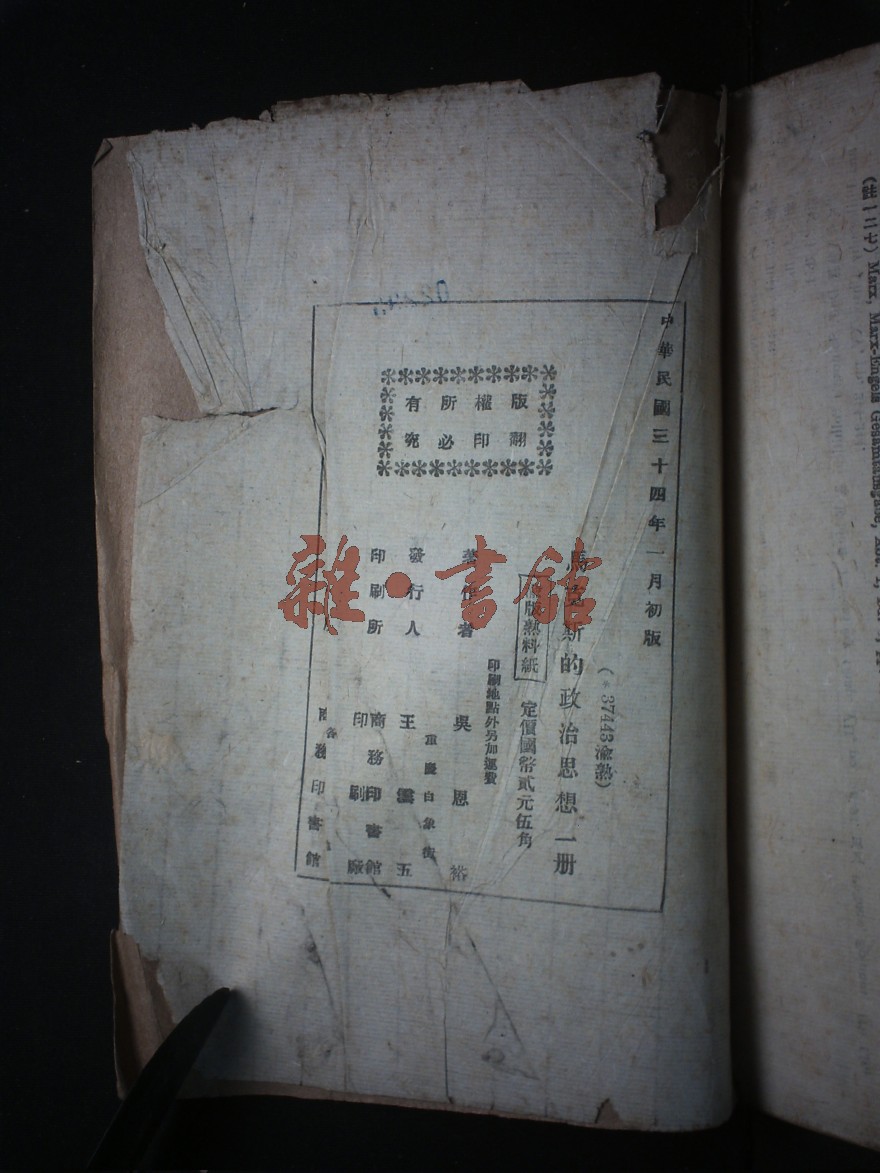 中華民國三十四年一月初版
(＊37443渝熱)
馬克斯的政治思想一册
版熱料紙
定價國幣貳元伍角
印刷地點外另加運費
版權所有
翻印必究
著作者 吳恩裕
重慶白象街
發行人 王雲五
印刷所 商務印書館
印刷廠
商務印書館
雜·書館
(註一二七) Marx, Marx-Engels Gesamtausgabe,